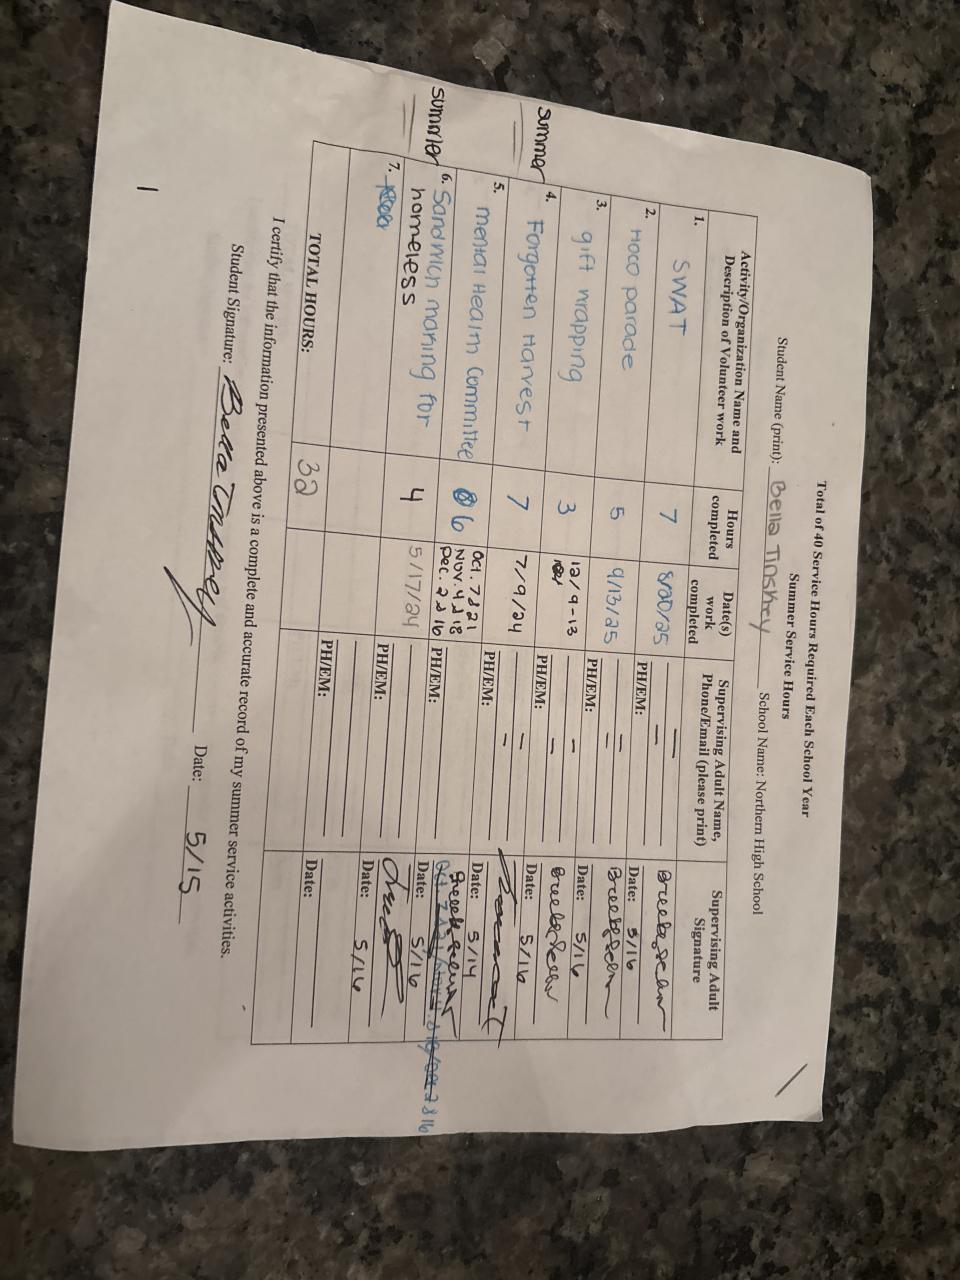 Total of 40 Service Hours Required Each School Year
Summer Service Hours
Student Name (print): Bella Tinskey School Name: Northern High School
Activity/Organization Name and Description of Volunteer work
Hours completed
Date(s) work completed
Supervising Adult Name, Phone/Email (please print)
Supervising Adult Signature
1. SWAT 7 8/20/25 —
PH/EM: — Date: 5/16
2. Hoco parade 5 9/13/25 —
PH/EM: — Date: 5/16
3. gift wrapping 3 12/9-13 —
PH/EM: — Date: 5/16
summer 4. Forgotten Harvest 7 7/9/24 —
PH/EM: — Date: 5/14
5. mental Health Committee 6 Oct. 7 & 21
Nov. 4 & 18
Dec. 2 & 16
PH/EM: Date: 5/16
summer 6. Sandwich making for
homeless 4 5/17/24
PH/EM: Date: 5/16
7.
PH/EM: Date:
TOTAL HOURS: 32
I certify that the information presented above is a complete and accurate record of my summer service activities.
Student Signature: Bella Tinskey Date: 5/15